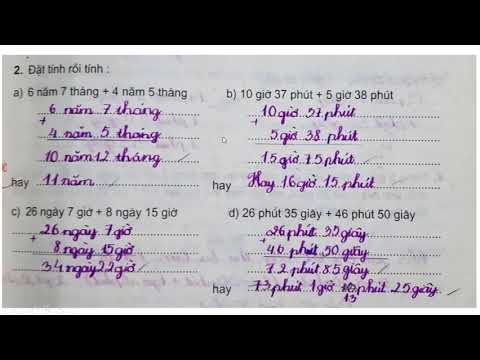 2. Đặt tính rồi tính :
a) 6 năm 7 tháng + 4 năm 5 tháng
6 năm 7 tháng
+
4 năm 5 tháng
10 năm 12 tháng
hay 11 năm
b) 10 giờ 37 phút + 5 giờ 38 phút
10 giờ 37 phút
+
5 giờ 38 phút
15 giờ 75 phút
hay Hay 16 giờ 15 phút
c) 26 ngày 7 giờ + 8 ngày 15 giờ
26 ngày 7 giờ
+
8 ngày 15 giờ
34 ngày 22 giờ
d) 26 phút 35 giây + 46 phút 50 giây
26 phút 35 giây
+
46 phút 50 giây
72 phút 85 giây
hay 73 phút 1 giờ phút 25 giây
13